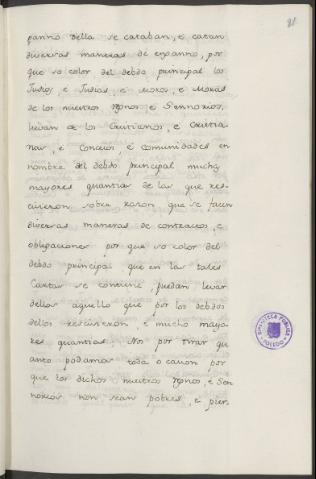 81
panno della se cataban, e catan
diversas maneras de engaño, por
que so color del debdo principal los
Judios, e Judias, e Moros, e Moras
de los nuestros Rgnos, e Sennorios,
lievan de los Christianos, e Christia
nas, e Conceios, e comunidades en
nombre del debdo principal muchas
mayores quantias de las que res
civieron sobre razon que se facen
diversas maneras de contractos, e
obligaciones por que so color del
debdo principal que en las tales
Cartas se contiene, puedan levar
dellos aquello que por los debdos
dellos rescivieron, e mucho mayo
res quantias. Nos por tirar qu
anto podamos toda ocasion por
que los dichos nuestros Rgnos, e Sen
norios non sean pobres, e pier
BIBLIOTECA PUBLICA
TOLEDO